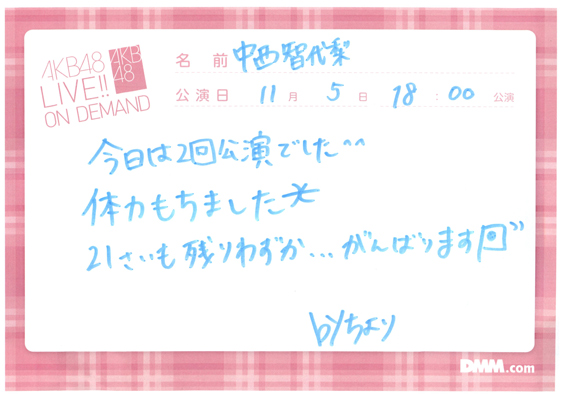 AKB48
LIVE!!
ON DEMAND
AKB
48
名前 中西智代梨
公演日 11月 5日 18:00 公演
今日は2回公演でした^^
体力もちました☆
21さいも残りわずか...がんばります回"
byちより
DMM.com